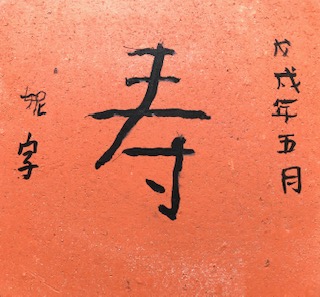 戊戌年五月
寿
妮字